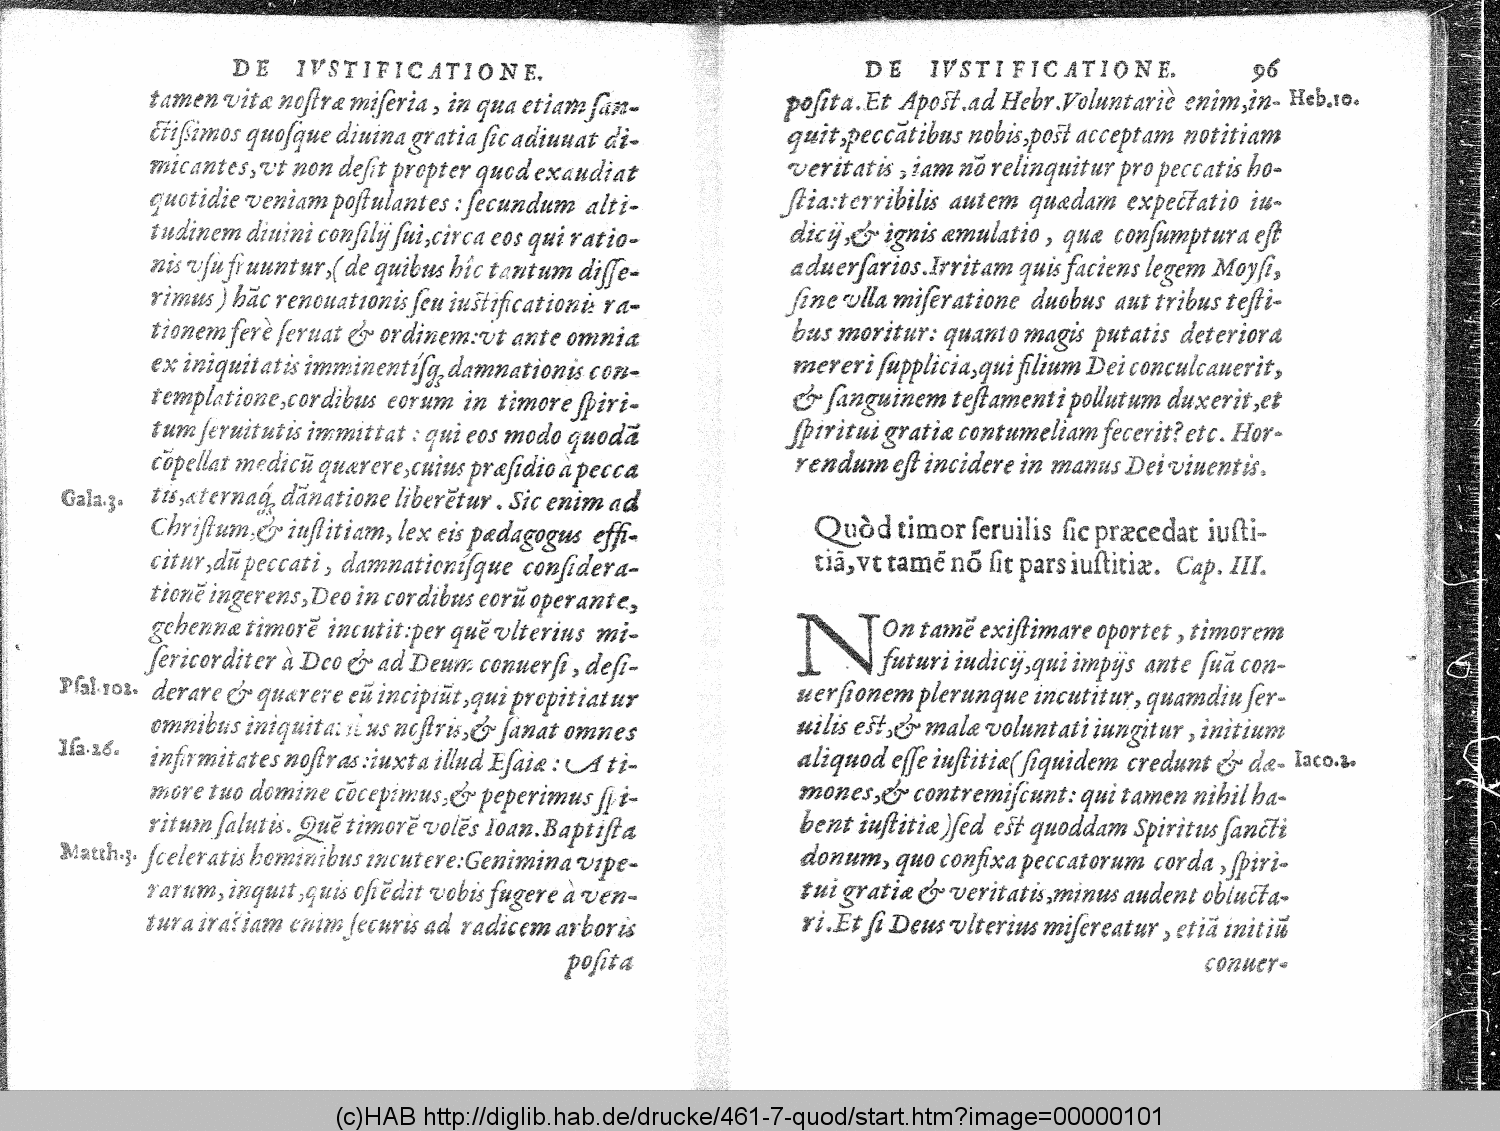 DE IVSTIFICATIONE.
tamen vitæ noſtræ miſeria, in qua etiam ſan-
ctißimos quoſque diuina gratia ſic adiuuat di-
micantes, vt non deſit propter quod exaudiat
quotidie veniam poſtulantes : ſecundum alti-
tudinem diuini conſilij ſui, circa eos qui ratio-
nis vſu fruuntur, (de quibus hîc tantum diſſe-
rimus) hãc renouationis ſeu iuſtificationis ra-
tionem ferè ſeruat & ordinem: vt ante omnia
ex iniquitatis imminentíſq; damnationis con-
templatione, cordibus eorum in timore ſpiri-
tum ſeruitutis immittat : qui eos modo quodã
cõpellat medicũ quærere, cuius præſidio à pecca
Gala.3. tis, æternaq́; dãnatione liberẽtur. Sic enim ad
Chriſtum, & iuſtitiam, lex eis pædagogus effi-
citur, dũ peccati, damnationíſque conſidera-
tionẽ ingerens, Deo in cordibus eorũ operante,
gehennæ timorẽ incutit: per quẽ vlterius mi-
ſericorditer à Deo & ad Deum conuerſi, deſi-
Pſal.102. derare & quærere eũ incipiũt, qui propitiatur
omnibus iniquitatibus noſtris, & ſanat omnes
Iſa.26. infirmitates noſtras: iuxta illud Eſaiæ : A ti-
more tuo domine cõcepimus, & peperimus ſpi-
ritum ſalutis. Quẽ timorẽ volẽs Ioan. Baptiſta
Matth.3. ſceleratis hominibus incutere: Genimina vipe-
rarum, inquit, quis oſtẽdit vobis fugere à ven-
tura ira? iam enim ſecuris ad radicem arboris
poſita
DE IVSTIFICATIONE. 96
poſita. Et Apoſt. ad Hebr. Voluntariè enim, in- Heb.10.
quit, peccãtibus nobis, poſt acceptam notitiam
veritatis, iam nõ relinquitur pro peccatis ho-
ſtia: terribilis autem quædam expectatio iu-
dicij, & ignis æmulatio, quæ conſumptura eſt
aduerſarios. Irritam quis faciens legem Moyſi,
ſine vlla miſeratione duobus aut tribus teſti-
bus moritur: quanto magis putatis deteriora
mereri ſupplicia, qui filium Dei conculcauerit,
& ſanguinem teſtamenti pollutum duxerit, et
ſpiritui gratiæ contumeliam fecerit? etc. Hor-
rendum eſt incidere in manus Dei viuentis.
Quòd timor ſeruilis ſic præcedat iuſti-
tiã, vt tamẽ nõ ſit pars iuſtitiæ. Cap. III.
NOn tamẽ exiſtimare oportet, timorem
futuri iudicij, qui impijs ante ſuã con-
uerſionem plerunque incutitur, quamdiu ſer-
uilis eſt, & malæ voluntati iungitur, initium
aliquod eſſe iuſtitiæ (ſiquidem credunt & dæ- Iaco.2.
mones, & contremiſcunt: qui tamen nihil ha-
bent iuſtitiæ) ſed eſt quoddam Spiritus ſancti
donum, quo confixa peccatorum corda, ſpiri-
tui gratiæ & veritatis, minus audent oblucta-
ri. Et ſi Deus vlterius miſereatur, etiã initiũ
conuer-
(c)HAB http://diglib.hab.de/drucke/461-7-quod/start.htm?image=00000101